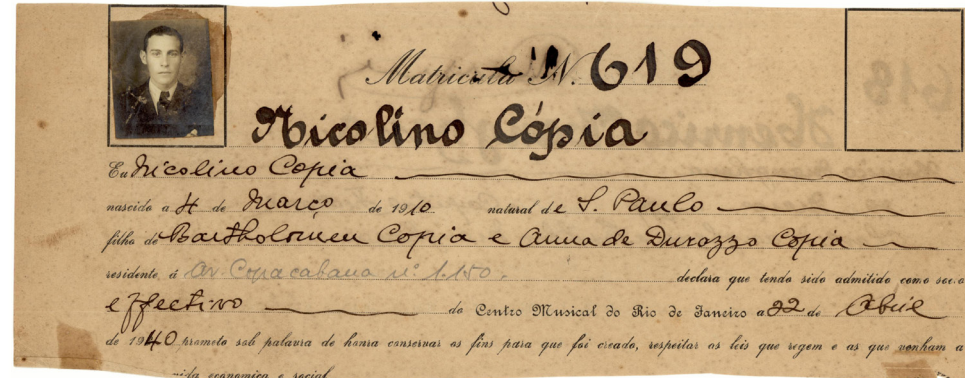 Matricula N. 619
Nicolino Cópia
Eu Nicolino Copia
nascido a 4 de Março de 1910 natural de S. Paulo
filho de Bartholomeu Copia e Anna de Durazzo Copia
residente á Av. Copacabana nº 1.150. declara que tendo sido admitido como socio
effectivo do Centro Musical do Rio de Janeiro a 22 de Abril
de 1940 prometo sob palavra de honra conservar os fins para que foi creado, respeitar as leis que regem e as que venham a
vida economica e social